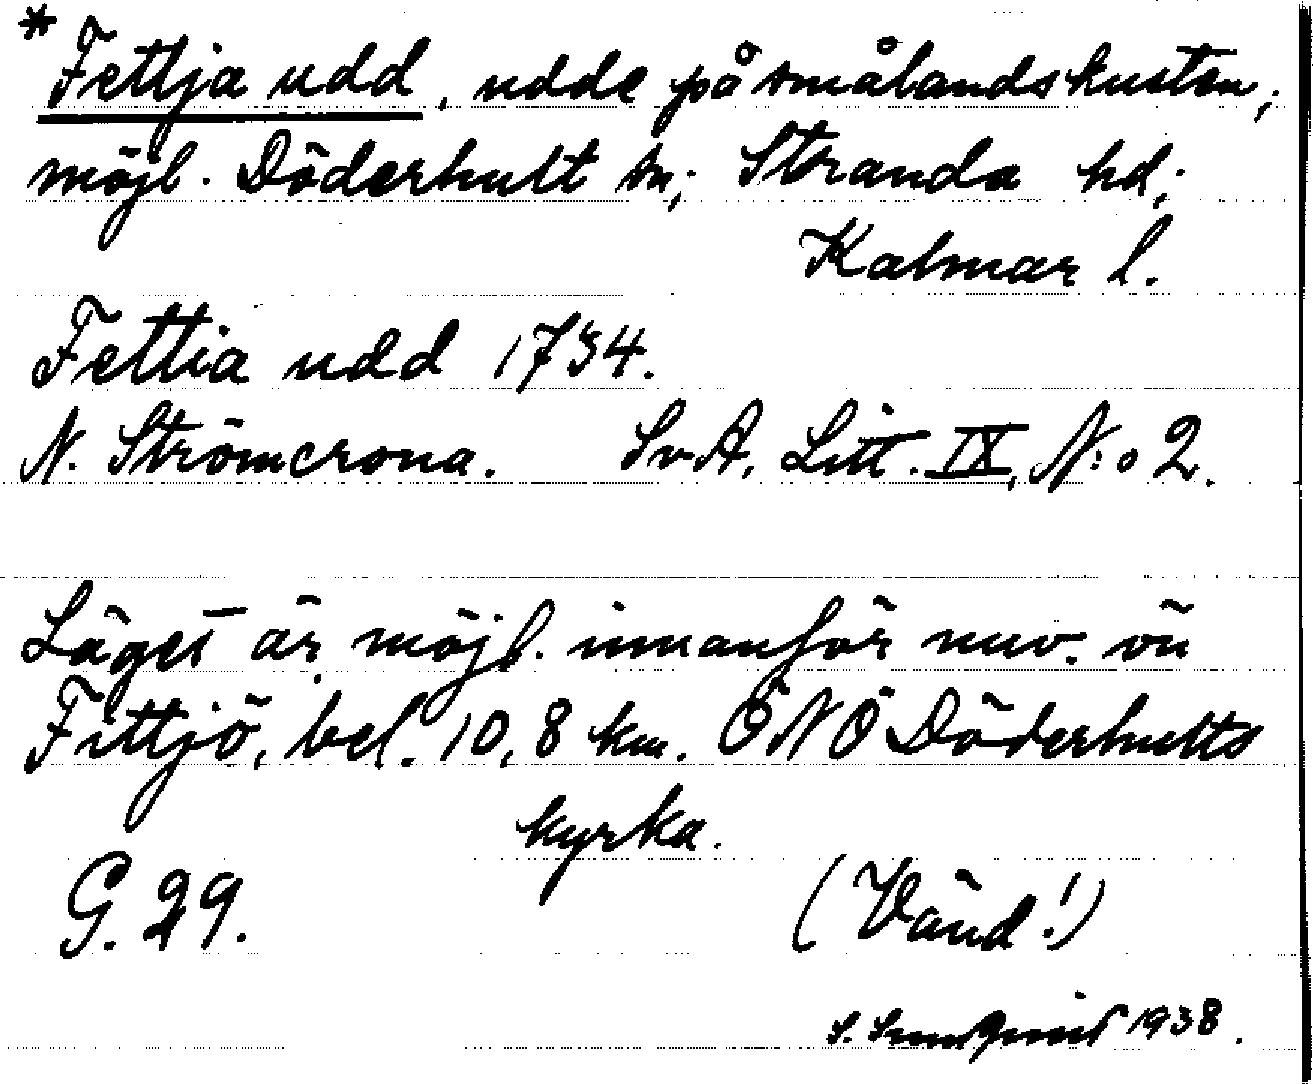 * Fettja udd, udde på smålandskusten;
möjl. Döderhult sn; Stranda hd;
Kalmar l.
Fettia udd 1734.
N. Strömcrona. SvA, Litt. IX, N:o 2.
Läget är möjl. innanför nuv. ön
Fittjö, bel. 10,8 km. ÖNÖ Döderhults
kyrka.
G. 29. (Vänd!)
S. 1938.